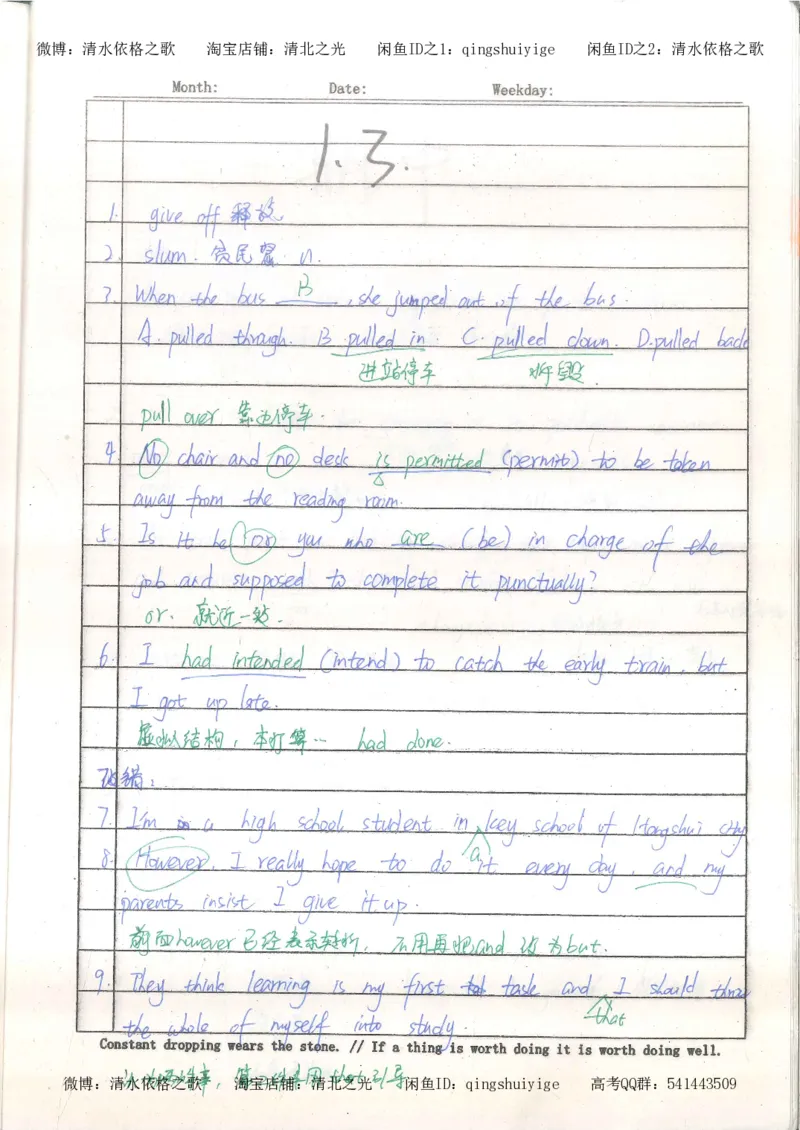 微博：清水依格之歌 淘宝店铺：清北之光 闲鱼ID之1：qingshuiyige 闲鱼ID之2：清水依格之歌
Month: Date: Weekday:
1.3.
1. give off 释放
2. slum. 贫民窟 n.
3. When the bus B , she jumped out of the bus.
A. pulled through. B pulled in. C. pulled down. D. pulled back
进站停车 拆毁
pull over 靠边停车.
4. No chair and no desk is permitted (permit) to be taken
away from the reading room.
5. Is it he or you who are (be) in charge of the
job and supposed to complete it punctually?
or. 就近一致.
6. I had intended (intend) to catch the early train, but
I got up late.
虚拟结构，本打算… had done.
改错：
7. I'm a high school student in key school of Hengshui city
a
8. However, I really hope to do it every day, and my
parents insist I give it up.
前面however已经表示转折，不用再把and改为but.
9. They think learning is my first task and I should throw
that
the whole of myself into study.
Constant dropping wears the stone. // If a thing is worth doing it is worth doing well.
微博：清水依格之歌 淘宝店铺：清北之光 闲鱼ID：qingshuiyige 高考QQ群：541443509